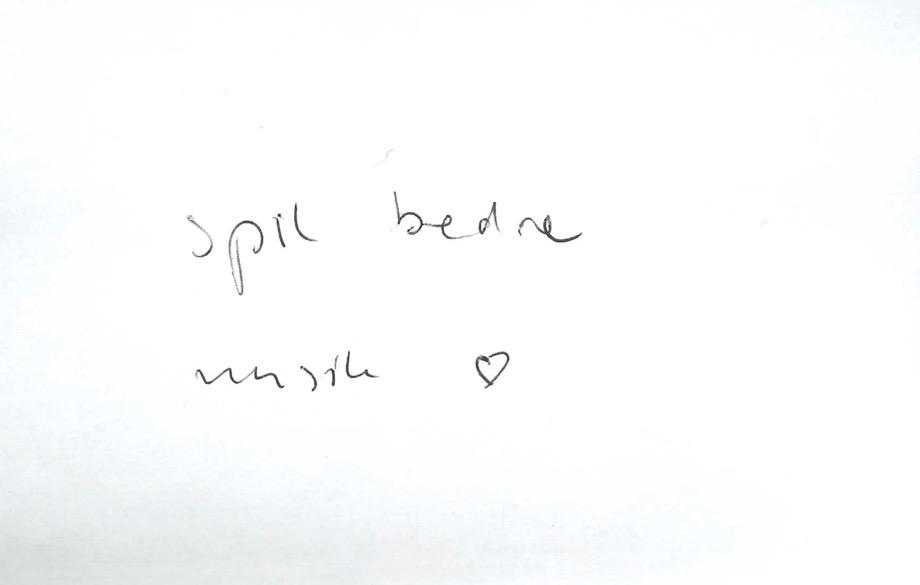 spil bedre
musik ♡